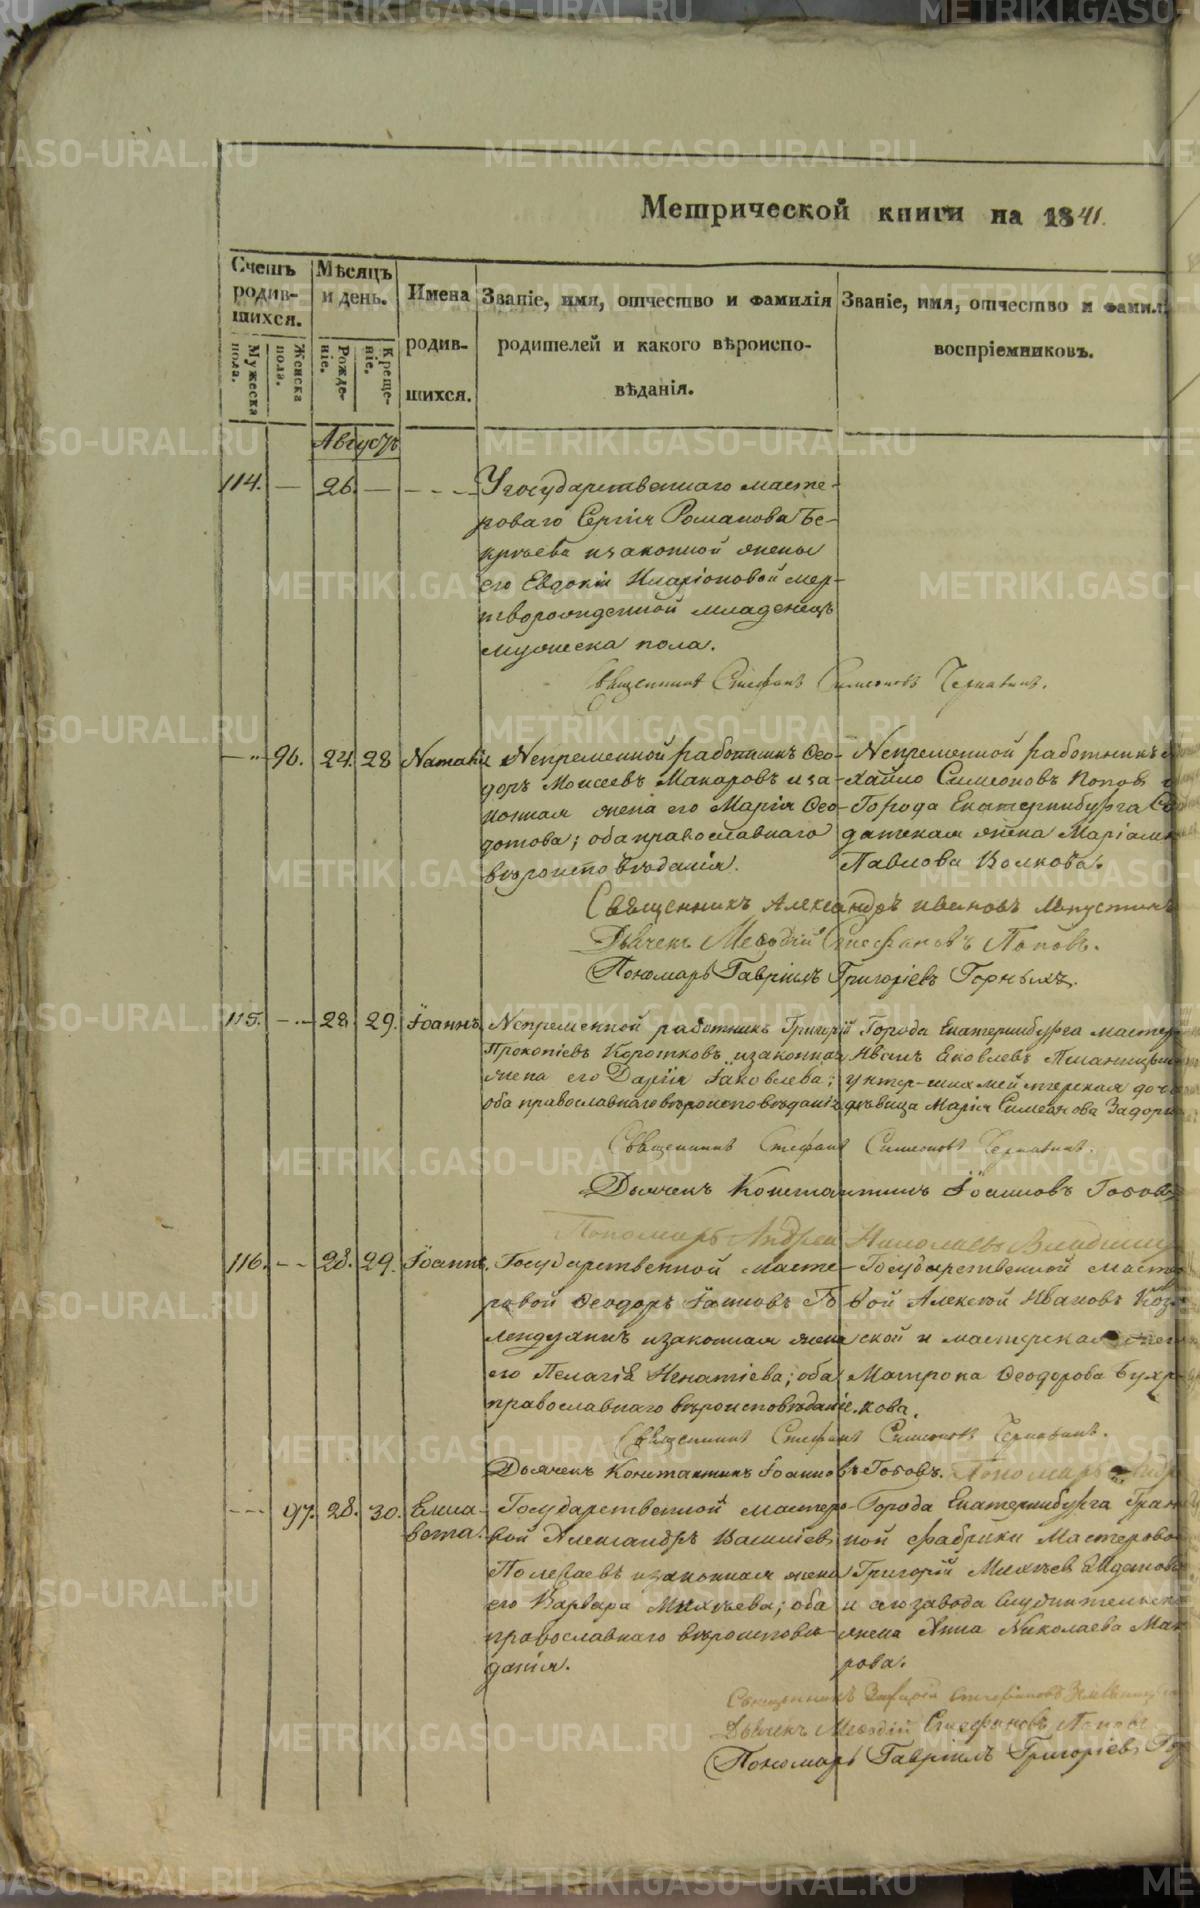 METRIKI.GASO-URAL.RU
Метрической книги на 1841.
Счетъ родившихся.
Мѣсяцъ и день.
Имена родившихся.
Званіе, имя, отчество и фамилія родителей и какого вѣроисповѣданія.
Званіе, имя, отчество и фамилі
воспріемниковъ.
Мужеска пола.
Женска пола.
Рожденіе.
Крещеніе.
Августъ
114. — 26. — - - -
У государственнаго масте-
роваго Сергія Романова Бе-
изаконной жены
его Евдокіи Иларіоновой мер-
творожденной младенецъ
мужеска пола.
Священникъ Стефанъ Симеоновъ Чернавинъ.
96. 24. 28 Наталія
Непременной работникъ Ѳео-
доръ Моисеевъ Макаровъ иза-
конная жена его Марія Ѳео-
дотова; оба православнаго
вѣроисповѣданія.
Непременной работникъ
хайло Симеоновъ Поповъ
Города Екатеринбурга
датская жена Маріам
Павлова Волкова.
Священникъ Александръ Ивановъ
Дьячекъ Меѳодій Стефановъ Поповъ.
Пономарь Гавріилъ Григоріевъ Горныхъ.
115. — 28. 29. Іоаннъ.
Непременной работникъ Григорій
Прокопіевъ Коротковъ изаконная
жена его Дарія Іаковлева;
оба православнаго вѣроисповѣданія
Города Екатеринбурга мастер
Иванъ Яковлевъ
унтер-шихмейтерская доч
дѣвица Марія Симеонова
Священникъ Стефанъ Симеоновъ Чернавинъ.
Дьячекъ Константинъ Іоанновъ
Пономарь Андрей Николаевъ
116. — 28. 29. Іоаннъ.
Государственной масте-
ровой Ѳеодоръ Іоанновъ Го-
лендухинъ изаконная жена
его Пелагія Игнатіева; оба
православнаго вѣроисповѣданія.
Государственной масте
вой Алексѣй Ивановъ
ской и мастерская
Матрона Ѳеодорова
кова.
Священникъ Стефанъ Симеоновъ Чернавинъ.
Дьячекъ Константинъ Іоанновъ Пономарь
97. 28. 30. Елиса-
вета.
Государственной мастеро-
вой Александръ Василіев
Полеваевъ изаконная жена
его Варвара Михѣева; оба
православнаго вѣроисповѣ-
данія.
Города Екатеринбурга Гран
ной фабрики Мастерово
Григорій Михѣев
и сего завода Служительск
жена Анна Николаева Мак
рова.
Священникъ
Дьячекъ Меѳодій Стефановъ Попов
Пономарь Гавріилъ Григоріев